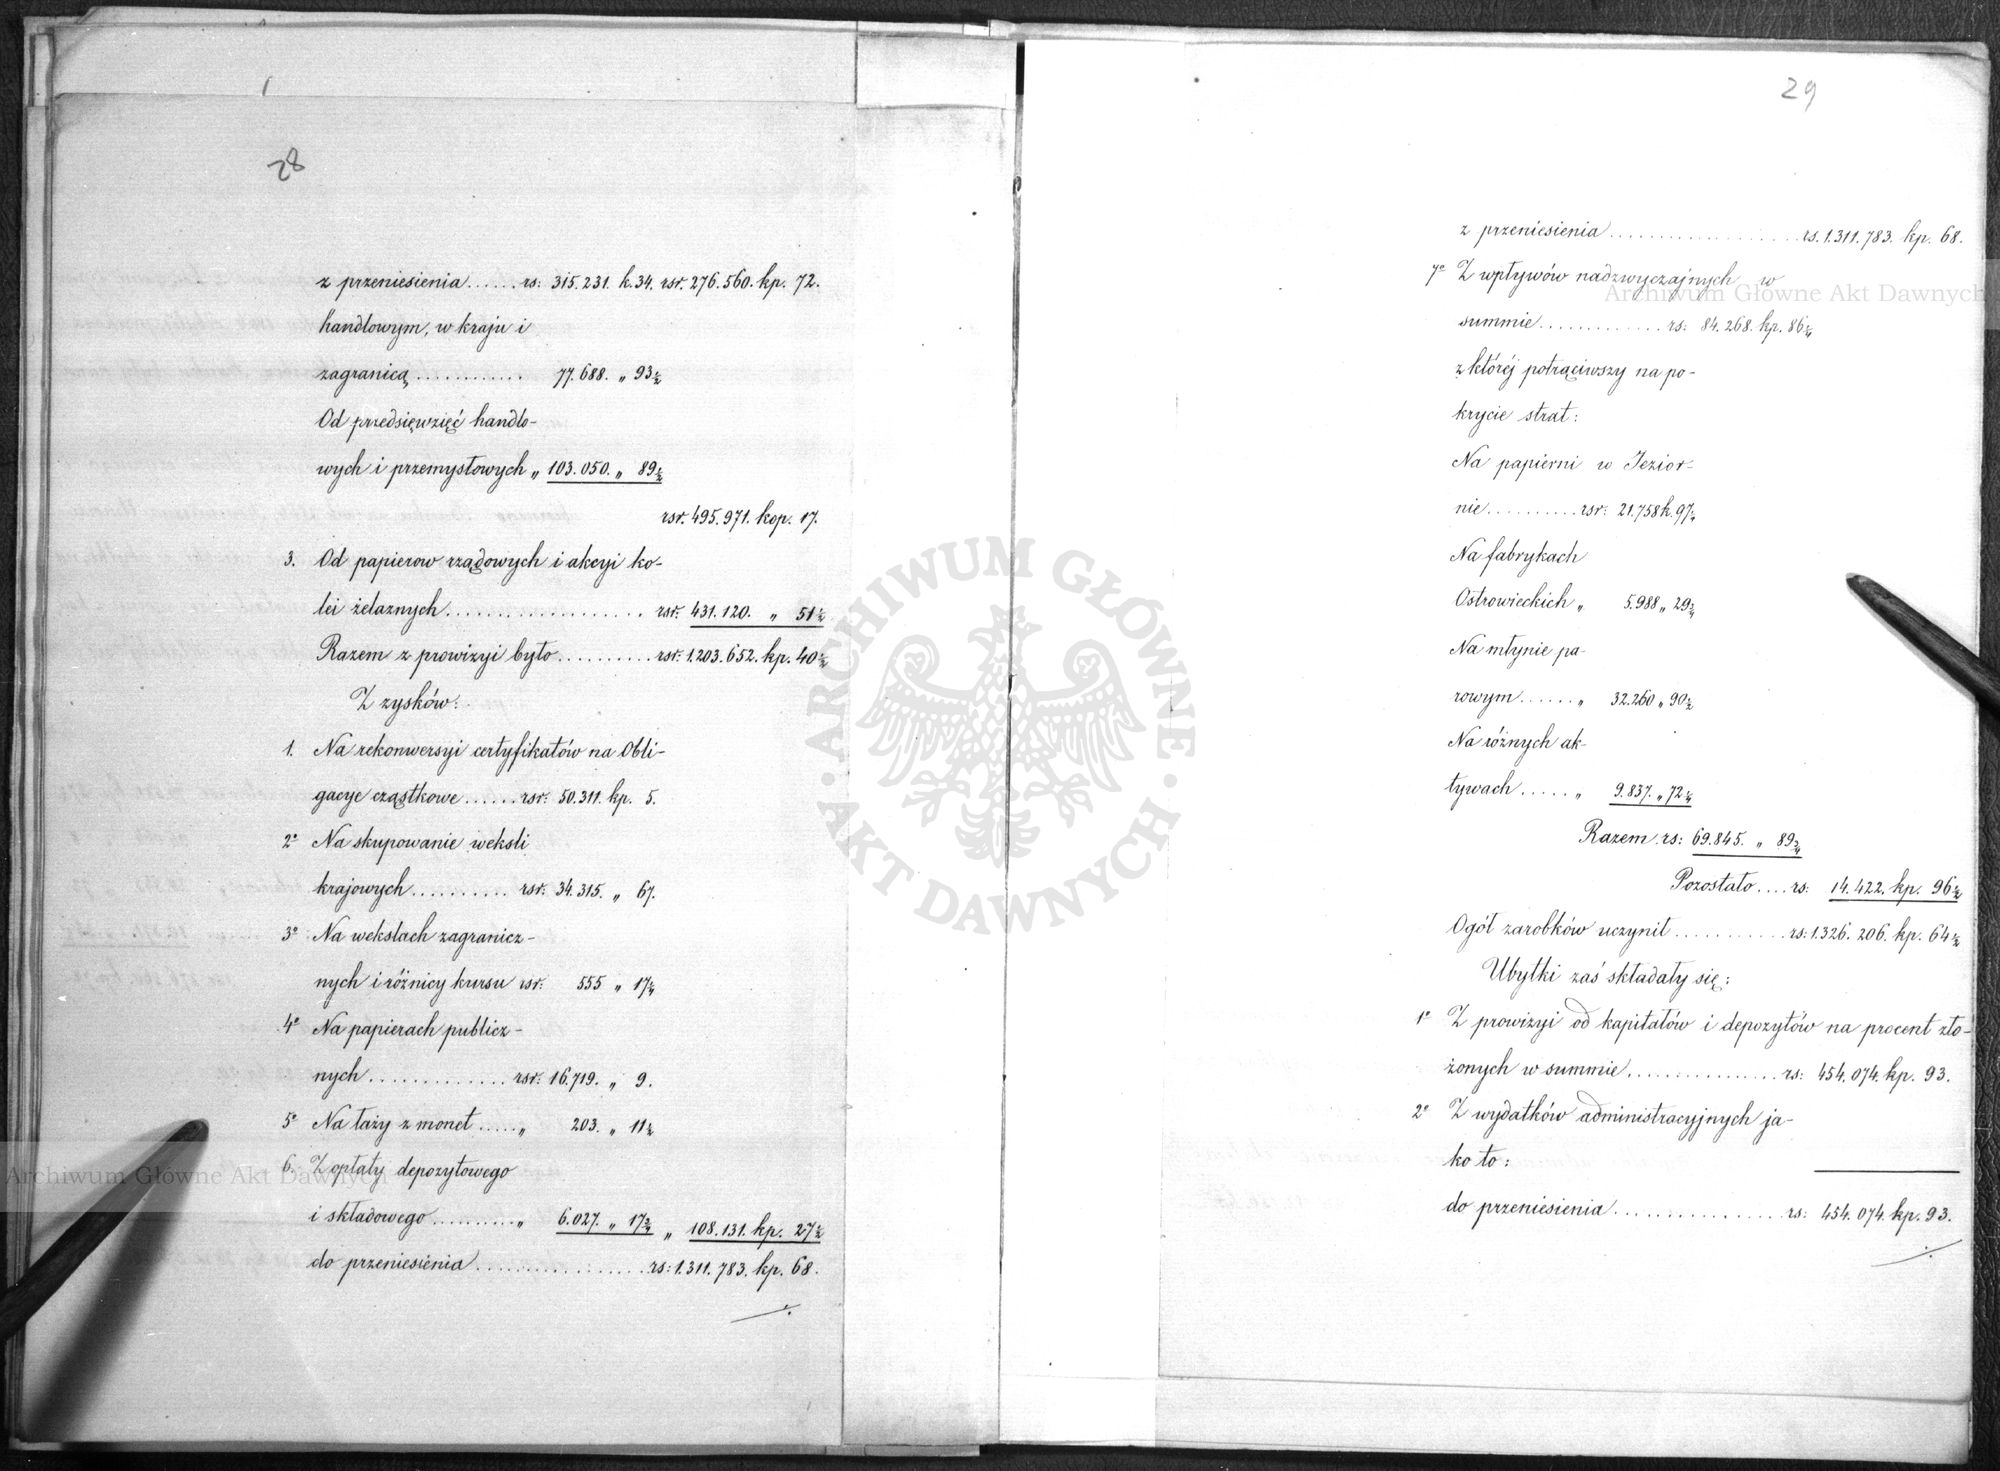 28
z przeniesienia...... rs: 315.231. k.34. rsr. 276.560. kp. 72.
handlowym, w kraju i
zagranicą............ 77.688. „ 93½
Od przedsięwzięć handlo-
wych i przemysłowych „ 103.050. „ 89½
rsr. 495.971. kop. 17.
3. Od papierow rządowych i akcyi ko-
lei żelaznych.................... rsr. 431.120. „ 51½
Razem z prowizyi było.......... rsr. 1.203.652. kp. 40½
Z zysków:
1. Na rekonwersyi certyfikatów na Obli-
gacye cząstkowe...... rsr. 50.311. kp. 5.
2º Na skupowanie weksli
krajowych.......... rsr. 34.315. „ 67.
3º Na wekslach zagranicz-
nych i różnicy kursu rsr. 555 „ 17¼
4º Na papierach publicz-
nych.............. rsr. 16.719. „ 9.
5º Na laży z monet..... „ 203. „ 11½
6. Z opłaty depozytowego
i składowego.......... „ 6.027. „ 17¾ „ 108.131. kp. 27½
do przeniesienia.................. rs: 1.311.783. kp. 68.
29
z przeniesienia................... rs. 1.311.783. kp. 68.
7º Z wpływów nadzwyczajnych w
summie............. rs: 84.268. kp. 86¼
z któréj potrąciwszy na po-
krycie strat:
Na papierni w Jezior-
nie.......... rsr. 21.758 k. 97¼
Na fabrykach
Ostrowieckich „ 5.988 „ 29¾
Na młynie pa-
rowym...... „ 32.260 „ 90½
Na różnych ak-
tywach..... „ 9.837. „ 72¼
Razem. rs: 69.845. „ 89¾
Pozostało.... rs: 14.422. kp. 96½
Ogół zarobków uczynił............ rs: 1.326.206. kp. 64½
Ubytki zaś składały się:
1º Z prowizyi od kapitałów i depozytów na procent zło-
żonych w summie................ rs: 454.074. kp. 93.
2º Z wydatków administracyjnych ja-
ko to:
do przeniesienia................. rs: 454.074. kp. 93.
Archiwum Główne Akt Dawnych
ARCHIWUM GŁÓWNE · AKT DAWNYCH ·
Archiwum Główne Akt Dawnych